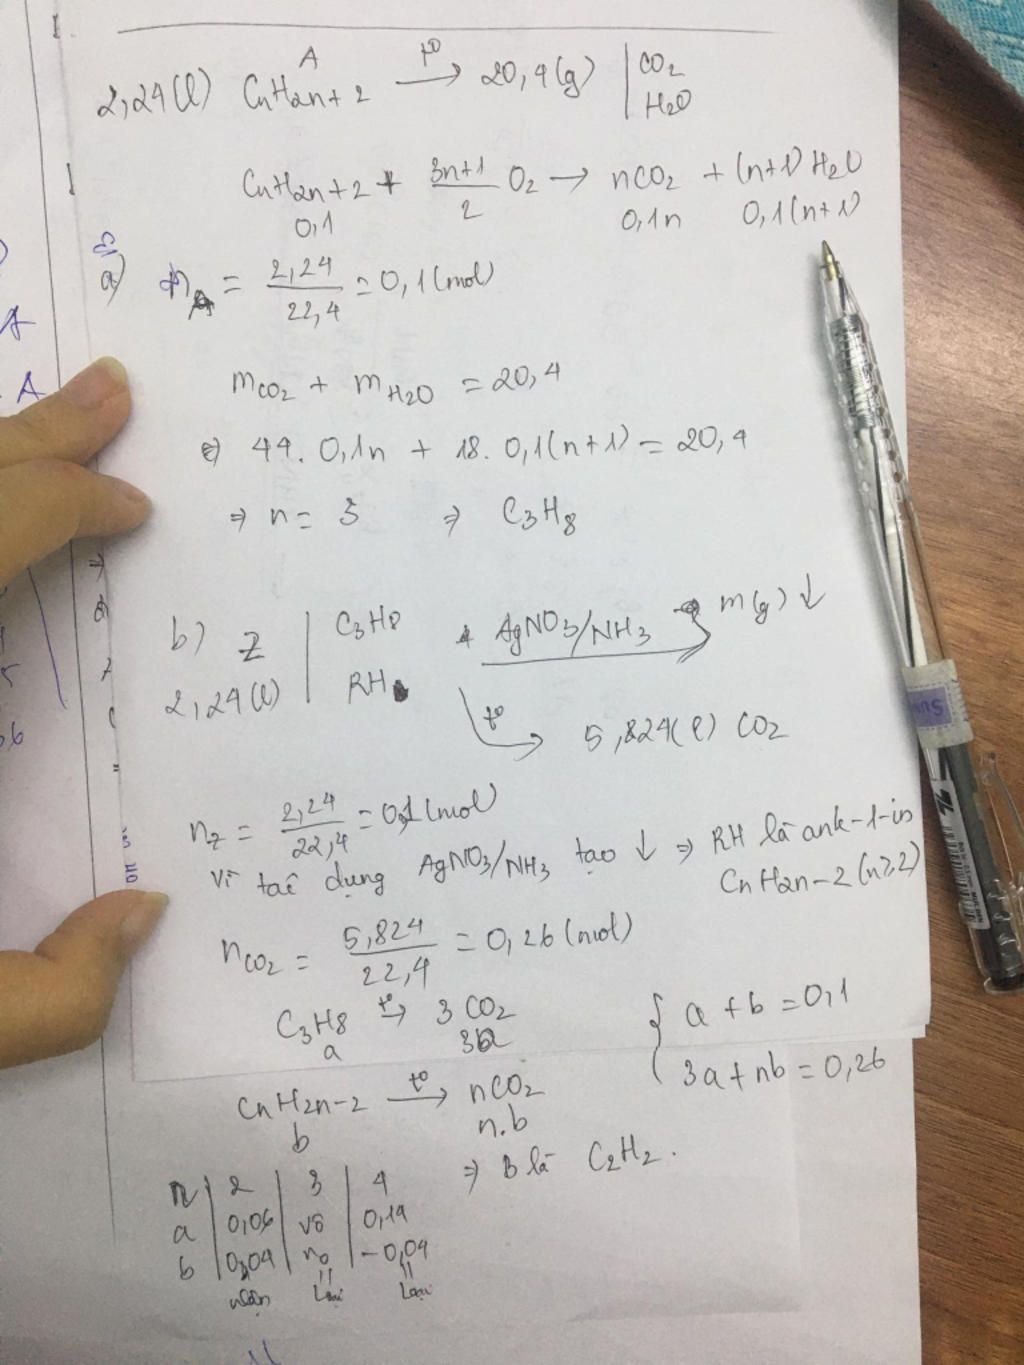 2,24(l) CnH2n+2 A t° → 20,4(g) | CO2
H2O
CnH2n+2 + 3n+1/2 O2 → nCO2 + (n+1)H2O
0,1 0,1n 0,1(n+1)
a) nA = 2,24/22,4 = 0,1(mol)
mCO2 + mH2O = 20,4
⇔ 44. 0,1n + 18. 0,1(n+1) = 20,4
⇒ n = 3 ⇒ C3H8
b) Z | C3H8 + AgNO3/NH3 → m(g) ↓
2,24(l) | RH
t° → 5,824(l) CO2
nZ = 2,24/22,4 = 0,1(mol)
Vì tác dụng AgNO3/NH3 tạo ↓ ⇒ RH là ank-1-in
CnH2n-2 (n≥2)
nCO2 = 5,824/22,4 = 0,26(mol)
C3H8 t° → 3CO2 { a + b = 0,1
a 3a
3a + nb = 0,26
CnH2n-2 t° → nCO2
b n.b
⇒ B là C2H2.
n | 2 | 3 | 4
a | 0,06 | vô | 0,14
b | 0,04 | no | -0,04
nhận Loại Loại